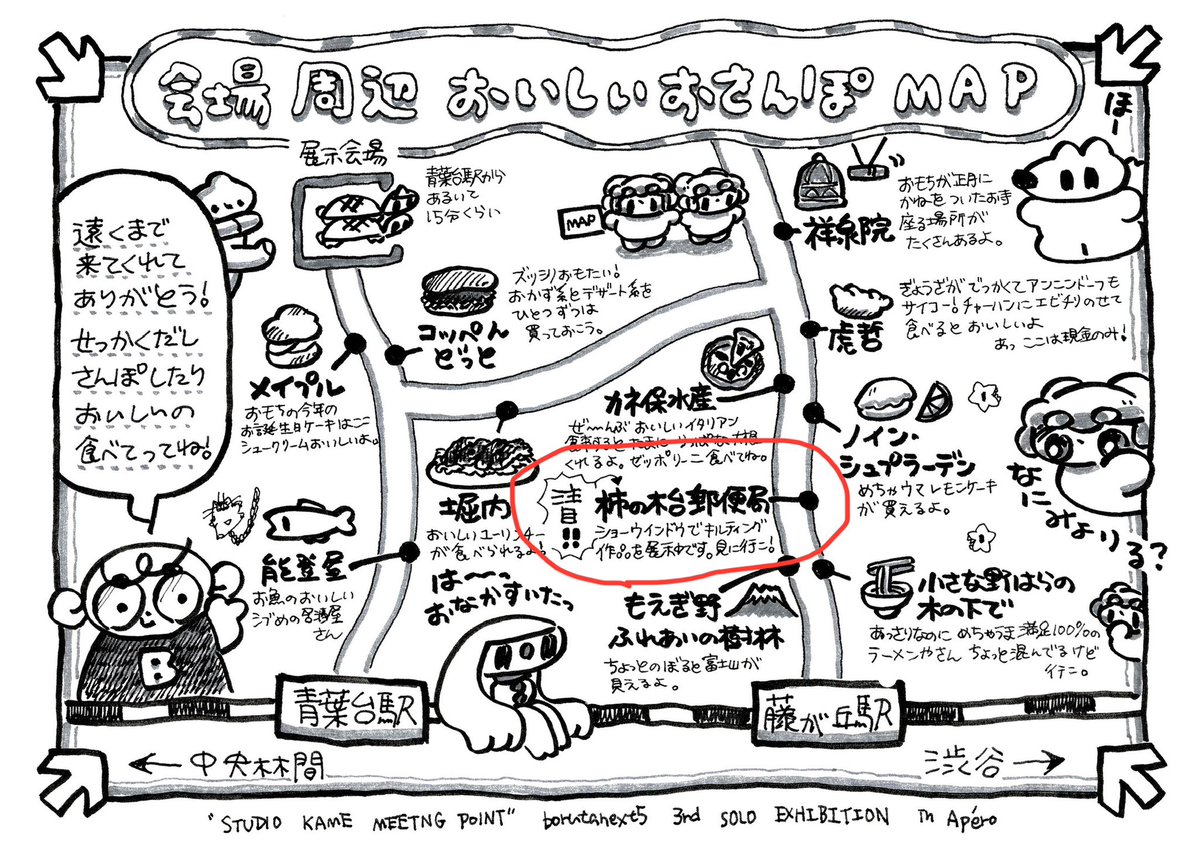 会場 周辺 おいしいおさんぽ MAP
ほー
展示会場
青葉台駅から
あるいて
15分くらい
MAP
祥泉院
おもちが正月に
かねをついたお寺
座る場所が
たくさんあるよ。
遠くまで
来てくれて
ありがとう!
せっかくだし
さんぽしたり
おいしいの
食べてってね!
コッペん
どっと
ズッシリおもたい!
おかず系とデザート系を
ひとつずつは
買っておこう。
虎哲
ぎょうざがでっかくてアンニンドーフも
サイコー!チャーハンにエビチリのせて
食べるとおいしいよ
あっ ここは現金のみ!
メイプル
おもちの今年の
お誕生日ケーキはここ
シュークリームおいしいよ。
カネ保水産
ぜ〜んぶおいしいイタリアン
くれるよ。ゼッポリーニ食べてね。
ノイン・
シュプラーデン
めちゃウマレモンケーキ
が買えるよ。
なにみよりる?
堀内
おいしいユーリンチー
が食べられるよ!
注目!!
柿の木台郵便局
ショーウインドウでキルティング
作品を展示中です。見に行こ!
能登屋
お魚のおいしい
シブめの居酒屋
さん
は〜っ
おなかすいたっ
もえぎ野
ふれあいの樹林
ちょっとのぼると富士山が
見えるよ。
小さな野はらの
木の下で
あっさりなのにめちゃうま満足100%の
ラーメンやさん ちょっと混んでるけど
行こ。
B
青葉台駅
藤が丘駅
← 中央林間
渋谷 →
"STUDIO KAME MEETNG POINT" borutanext5 3rd SOLO EXHIBITION in Apéro